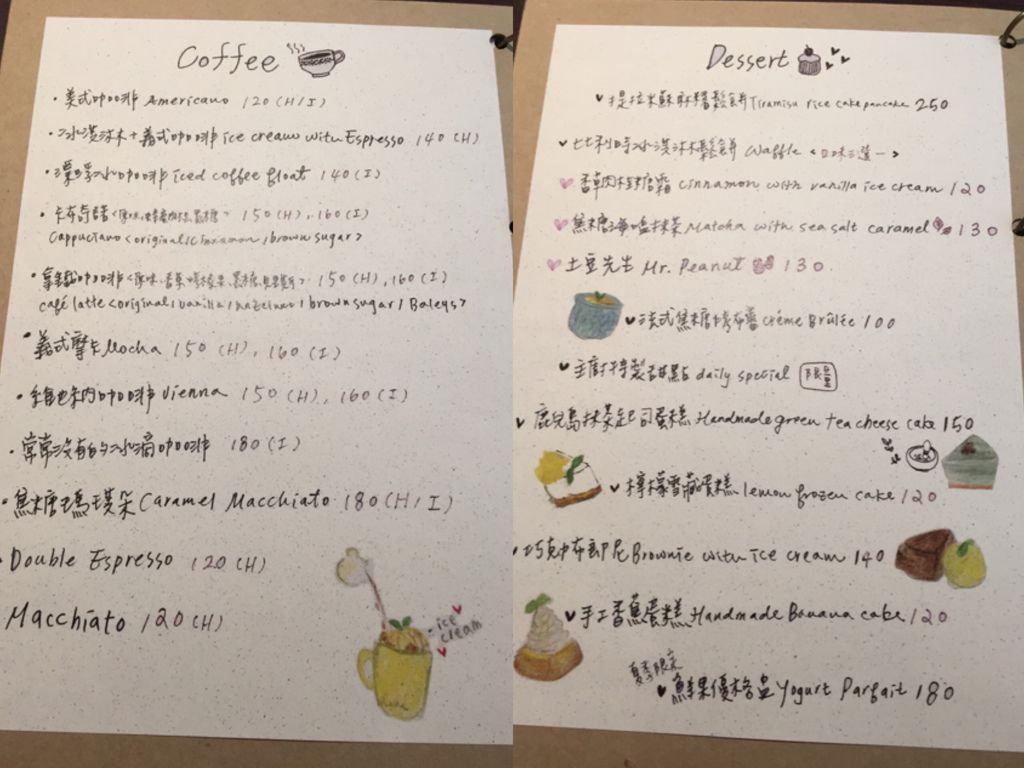 Coffee
・美式咖啡 Americano 120 (H/I)
・冰淇淋+義式咖啡 ice cream with Espresso 140 (H)
・漂浮冰咖啡 iced coffee float 140 (I)
・卡布奇諾 150 (H), 160 (I)
Cappuciano <original/Cinnamon/brown sugar>
・拿鐵咖啡 150 (H), 160 (I)
café latte <original/vanilla/hazelnut/brown sugar/Baleys>
・義式摩卡 Mocha 150 (H), 160 (I)
・維也納咖啡 Vienna 150 (H), 160 (I)
・常常沒有的冰滴咖啡 180 (I)
・焦糖瑪琪朵 Caramel Macchiato 180 (H/I)
・Double Espresso 120 (H)
Macchiato 120 (H)
ice
cream
Dessert
提拉米蘇麻糬鬆餅 Tiramisu rice cake pancake 250
比利時冰淇淋鬆餅 Waffle <口味三選一>
香草肉桂糖霜 cinnamon with vanilla ice cream 120
焦糖海鹽抹茶 Matcha with sea salt caramel 130
土豆先生 Mr. Peanut 130
法式焦糖烤布蕾 créme Brûlée 100
主廚特製甜點 daily special 限量
鹿兒島抹茶起司蛋糕 Handmade green tea cheese cake 150
檸檬雪藏蛋糕 lemon frozen cake 120
巧克力布朗尼 Brownie with ice cream 140
手工香蕉蛋糕 Handmade Banana cake 120
夏季限定
鮮果優格盅 Yogurt Parfait 180